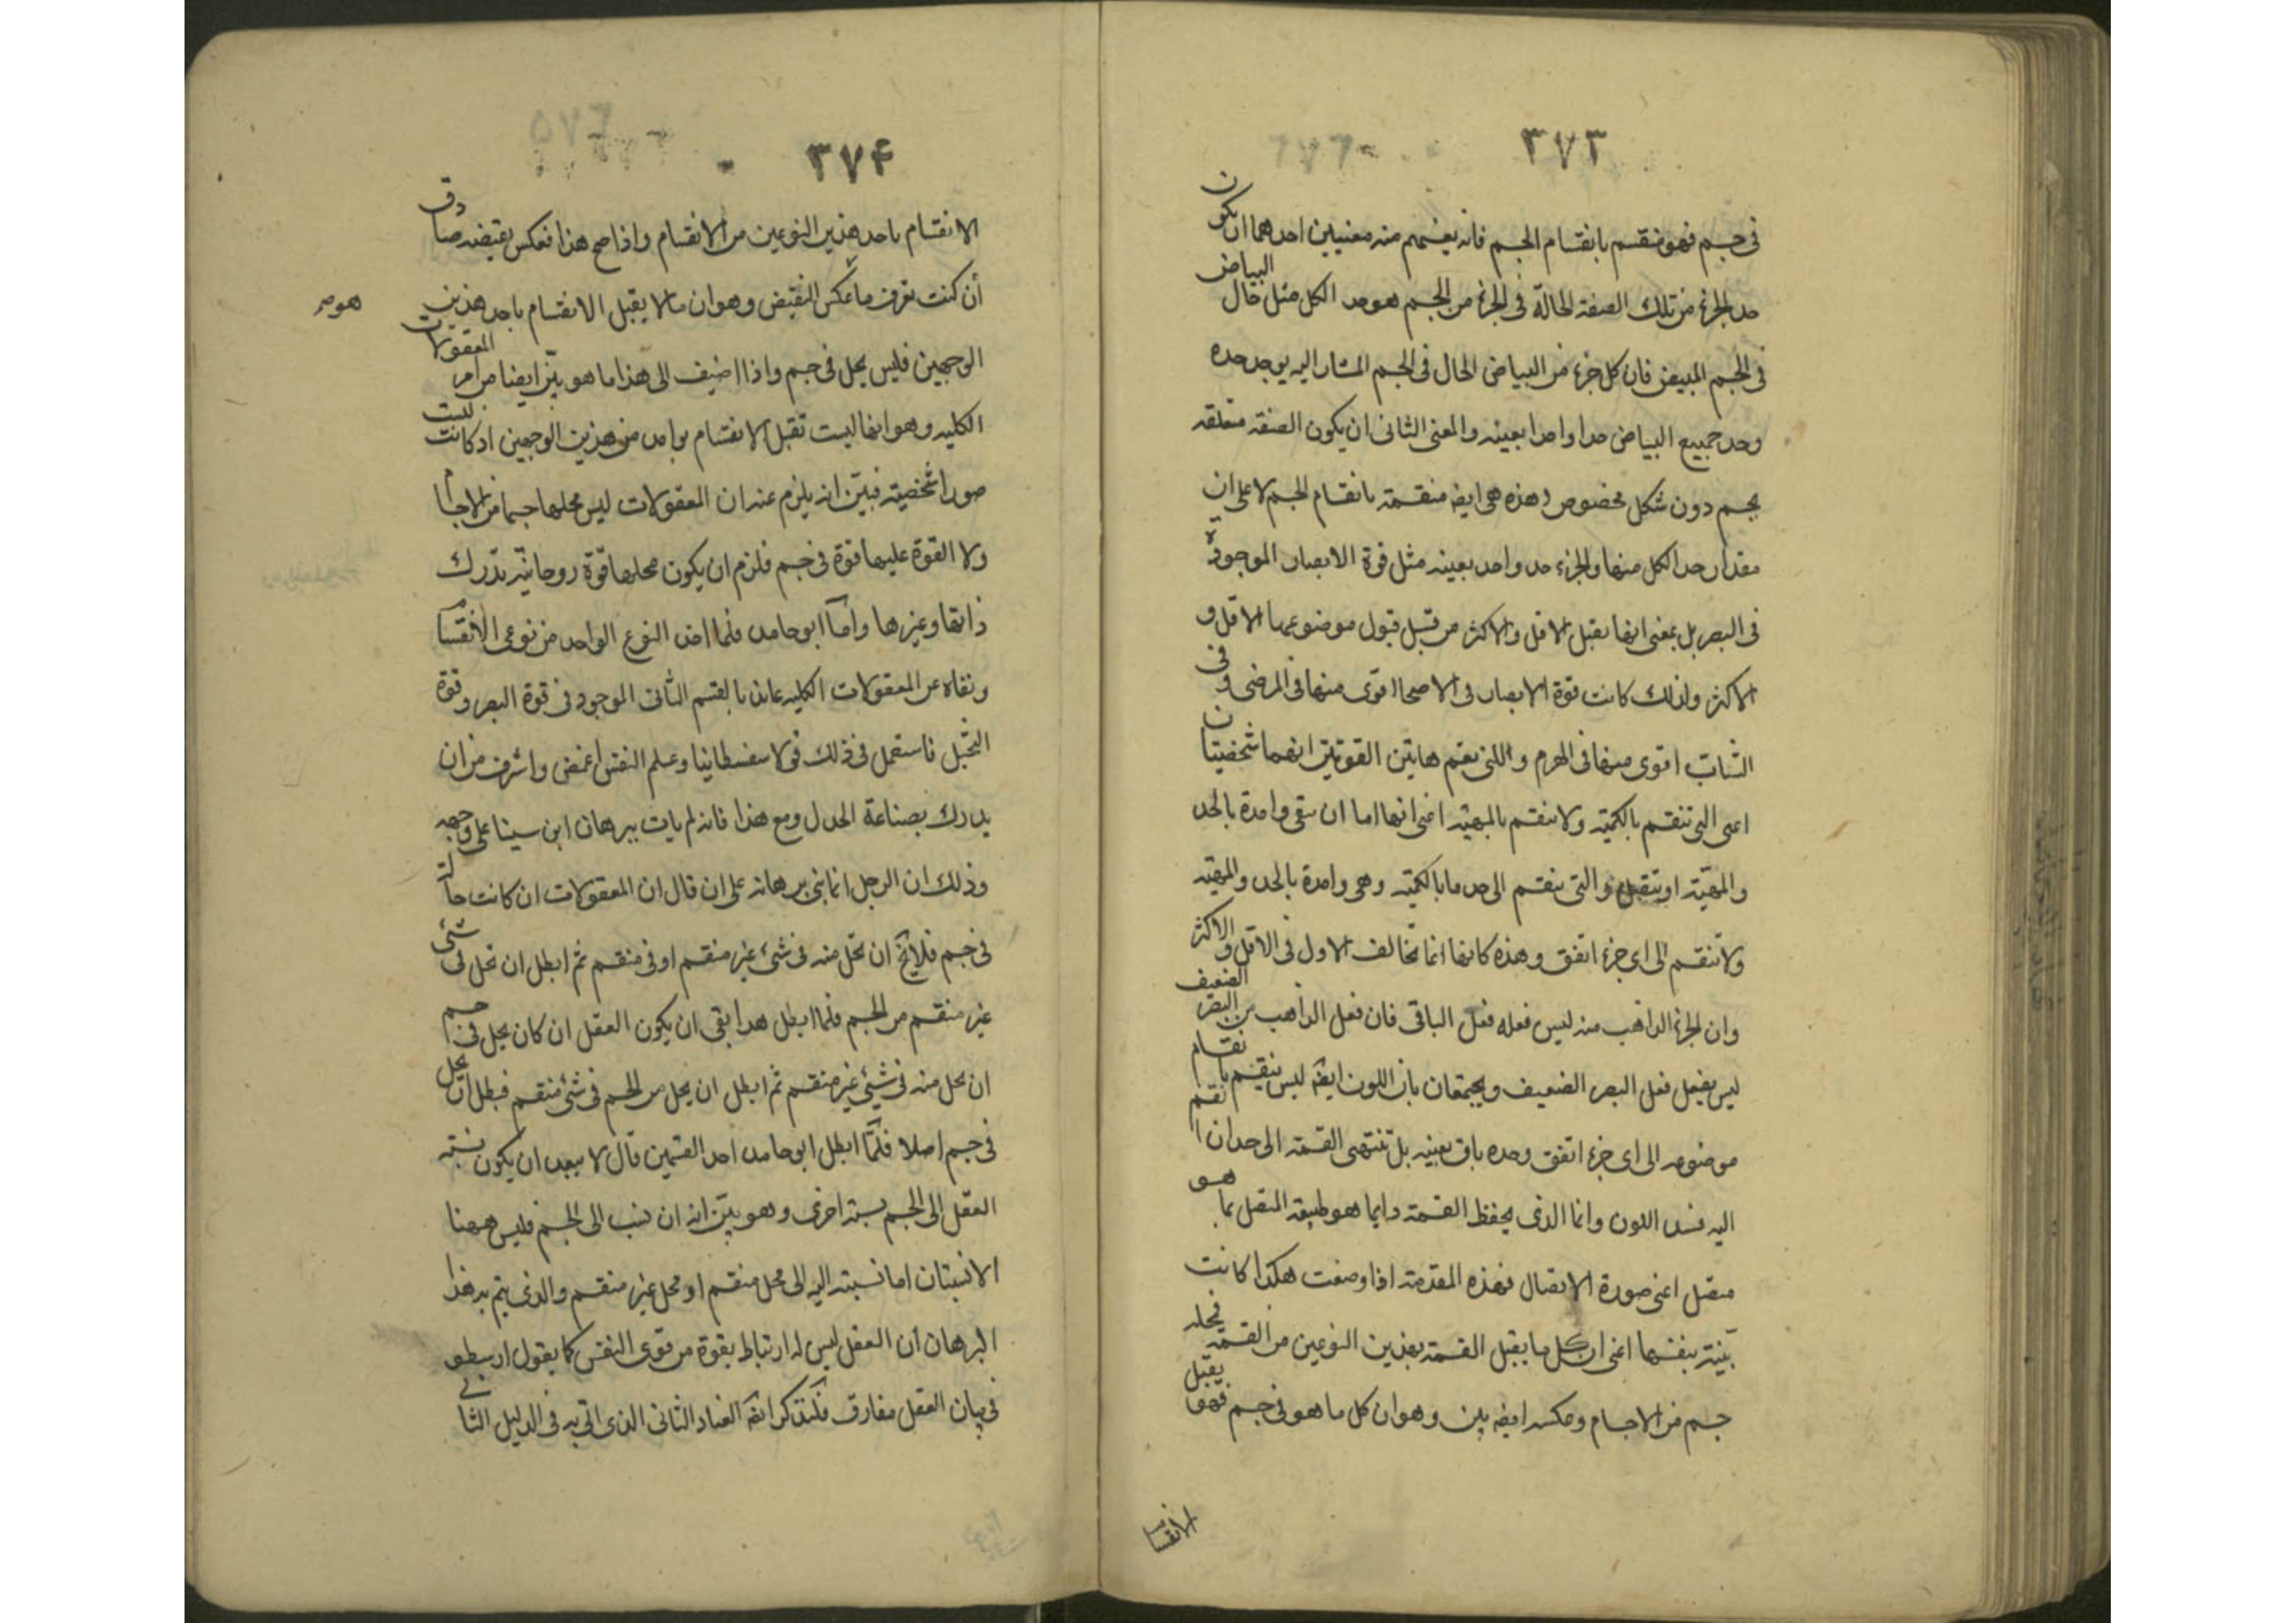 ٣٧٣
فى جسم فهو منقسم بانقسام الجسم فانه يفهم منه معنيين احدهما ان يكون
حد الجزء من تلك الصفة الحالّة فى الجزء من الجسم هو حد الكل مثل حال البياض
فى الجسم المبيض فان كل جزء من البياض الحال فى الجسم المشار اليه يوجد حده
وحد جميع البياض حدا واحدا بعينه والمعنى الثانى ان يكون الصفة متعلقه
بجسم دون شكل مخصوص وهذه هى ايضه منقسمة بانقسام الجسم لا على ان
مقدار حد الكل منها والجزء حد واحد بعينه مثل قوة الابصار الموجودة
فى البصر بل بمعنى انها تقبل الاقل والاكثر من قبل قبول موضوعها الاقل و
الاكثر ولذلك كانت قوة الابصار فى الاصحا اقوى منها فى المرضى وفى
الشابّ اقوى منها فى الهرم واللتى تعم هاتين القوتين انهما شخصيتان
اعنى التى تنقسم بالكميّة ولا تنقسم بالمهيّة اعنى انها اما ان تبقى واحدة بالحد
والمهيّة او تبطل والتى تنقسم الى حد ما بالكميّة وهى واحدة بالحد والمهيّه
ولا تنقسم الى اى جزء اتفق وهذه كانها انما تخالف الاول فى الاقل والاكثر
وان الجزء الذاهب منه ليس فعله فعل الباقى فان فعل الذاهب من البصر الضعيف
ليس يفعل فعل البصر الضعيف ويجتمعان بان اللون ايضه ليس ينقسم بانقسام
موضوعه الى اى جزء اتفق وحده باق بعينه بل تنتهى القسمة الى حد ان انقسم
اليه فسد اللون وانما الذى يحفظ القسمة دايما هو طبيعة المتصل بما هو
متصل اعنى صورة الاتصال فهذه المقدمة اذا وضعت هكذا كانت
بيّنة بنفسها اعنى ان كل ما يقبل القسمة بهذين النوعين من القسمة فمحله
جسم من الاجسام وعكسه ايضه بين وهو ان كل ما هو فى جسم فهو يقبل
الانقسا
٣٧۴
الانقسام باحد هذين النوعين من الانقسام واذا صح هذا فعكس نقيضه صادق
ان كنت تعرف ما عكس النقيض وهو ان ما لا يقبل الانقسام باحد هذين
الوجهين فليس يحل فى جسم واذا اضيف الى هذا ما هو بيّن ايضا من امر المعقولات
الكليه وهو انها ليست تقبل الانقسام بواحد من هذين الوجهين اذ كانت ليست
صورا شخصيّة فبيّن انه يلزم عنه ان المعقولات ليس محلها جسما من الاجسا
ولا القوة عليها قوة فى جسم فلزم ان يكون محلها قوّة روحانيّة تدرك
ذاتها وغيرها وامّا ابو حامد فلما اخذ النوع الواحد من نوعى الانقسا
ونفاه عن المعقولات الكليه عاند بالقسم الثانى الموجود فى قوة البصر وقوة
التخيّل فاستعمل فى ذلك قولا سفسطانيا وعلم النفس اغمض واشرف من ان
يدرك بصناعة الجدل ومع هذا فانه لم يات ببرهان ابن سينا على وجهه
وذلك ان الرجل انما بنى برهانه على ان قال ان المعقولات ان كانت حالة
فى جسم فلا يخ ان تحل منه فى شئ غير منقسم او فى منقسم ثم ابطل ان تحل فى شئ
غير منقسم من الجسم فلما ابطل هذا بقى ان يكون العقل ان كان يحل فى جسم
ان يحل منه فى شئ غير منقسم ثم ابطل ان يحل من الجسم فى شئ منقسم فبطل ان يحل
فى جسم اصلا فلمّا ابطل ابو حامد احد القسمين قال لا يبعد ان يكون نسبته
العقل الى الجسم نسبة اخرى وهو بيّن انه ان نسب الى الجسم فليس ههنا
الا نسبتان اما نسبته اليه الى محل منقسم او محل غير منقسم والذى يتم به هذا
البرهان ان العقل ليس له ارتباط بقوة من قوى النفس كما يقول ارسطو
فى بيان العقل مفارق فلنذكر ايضه العناد الثانى الذى اتى به فى الدليل الثانى